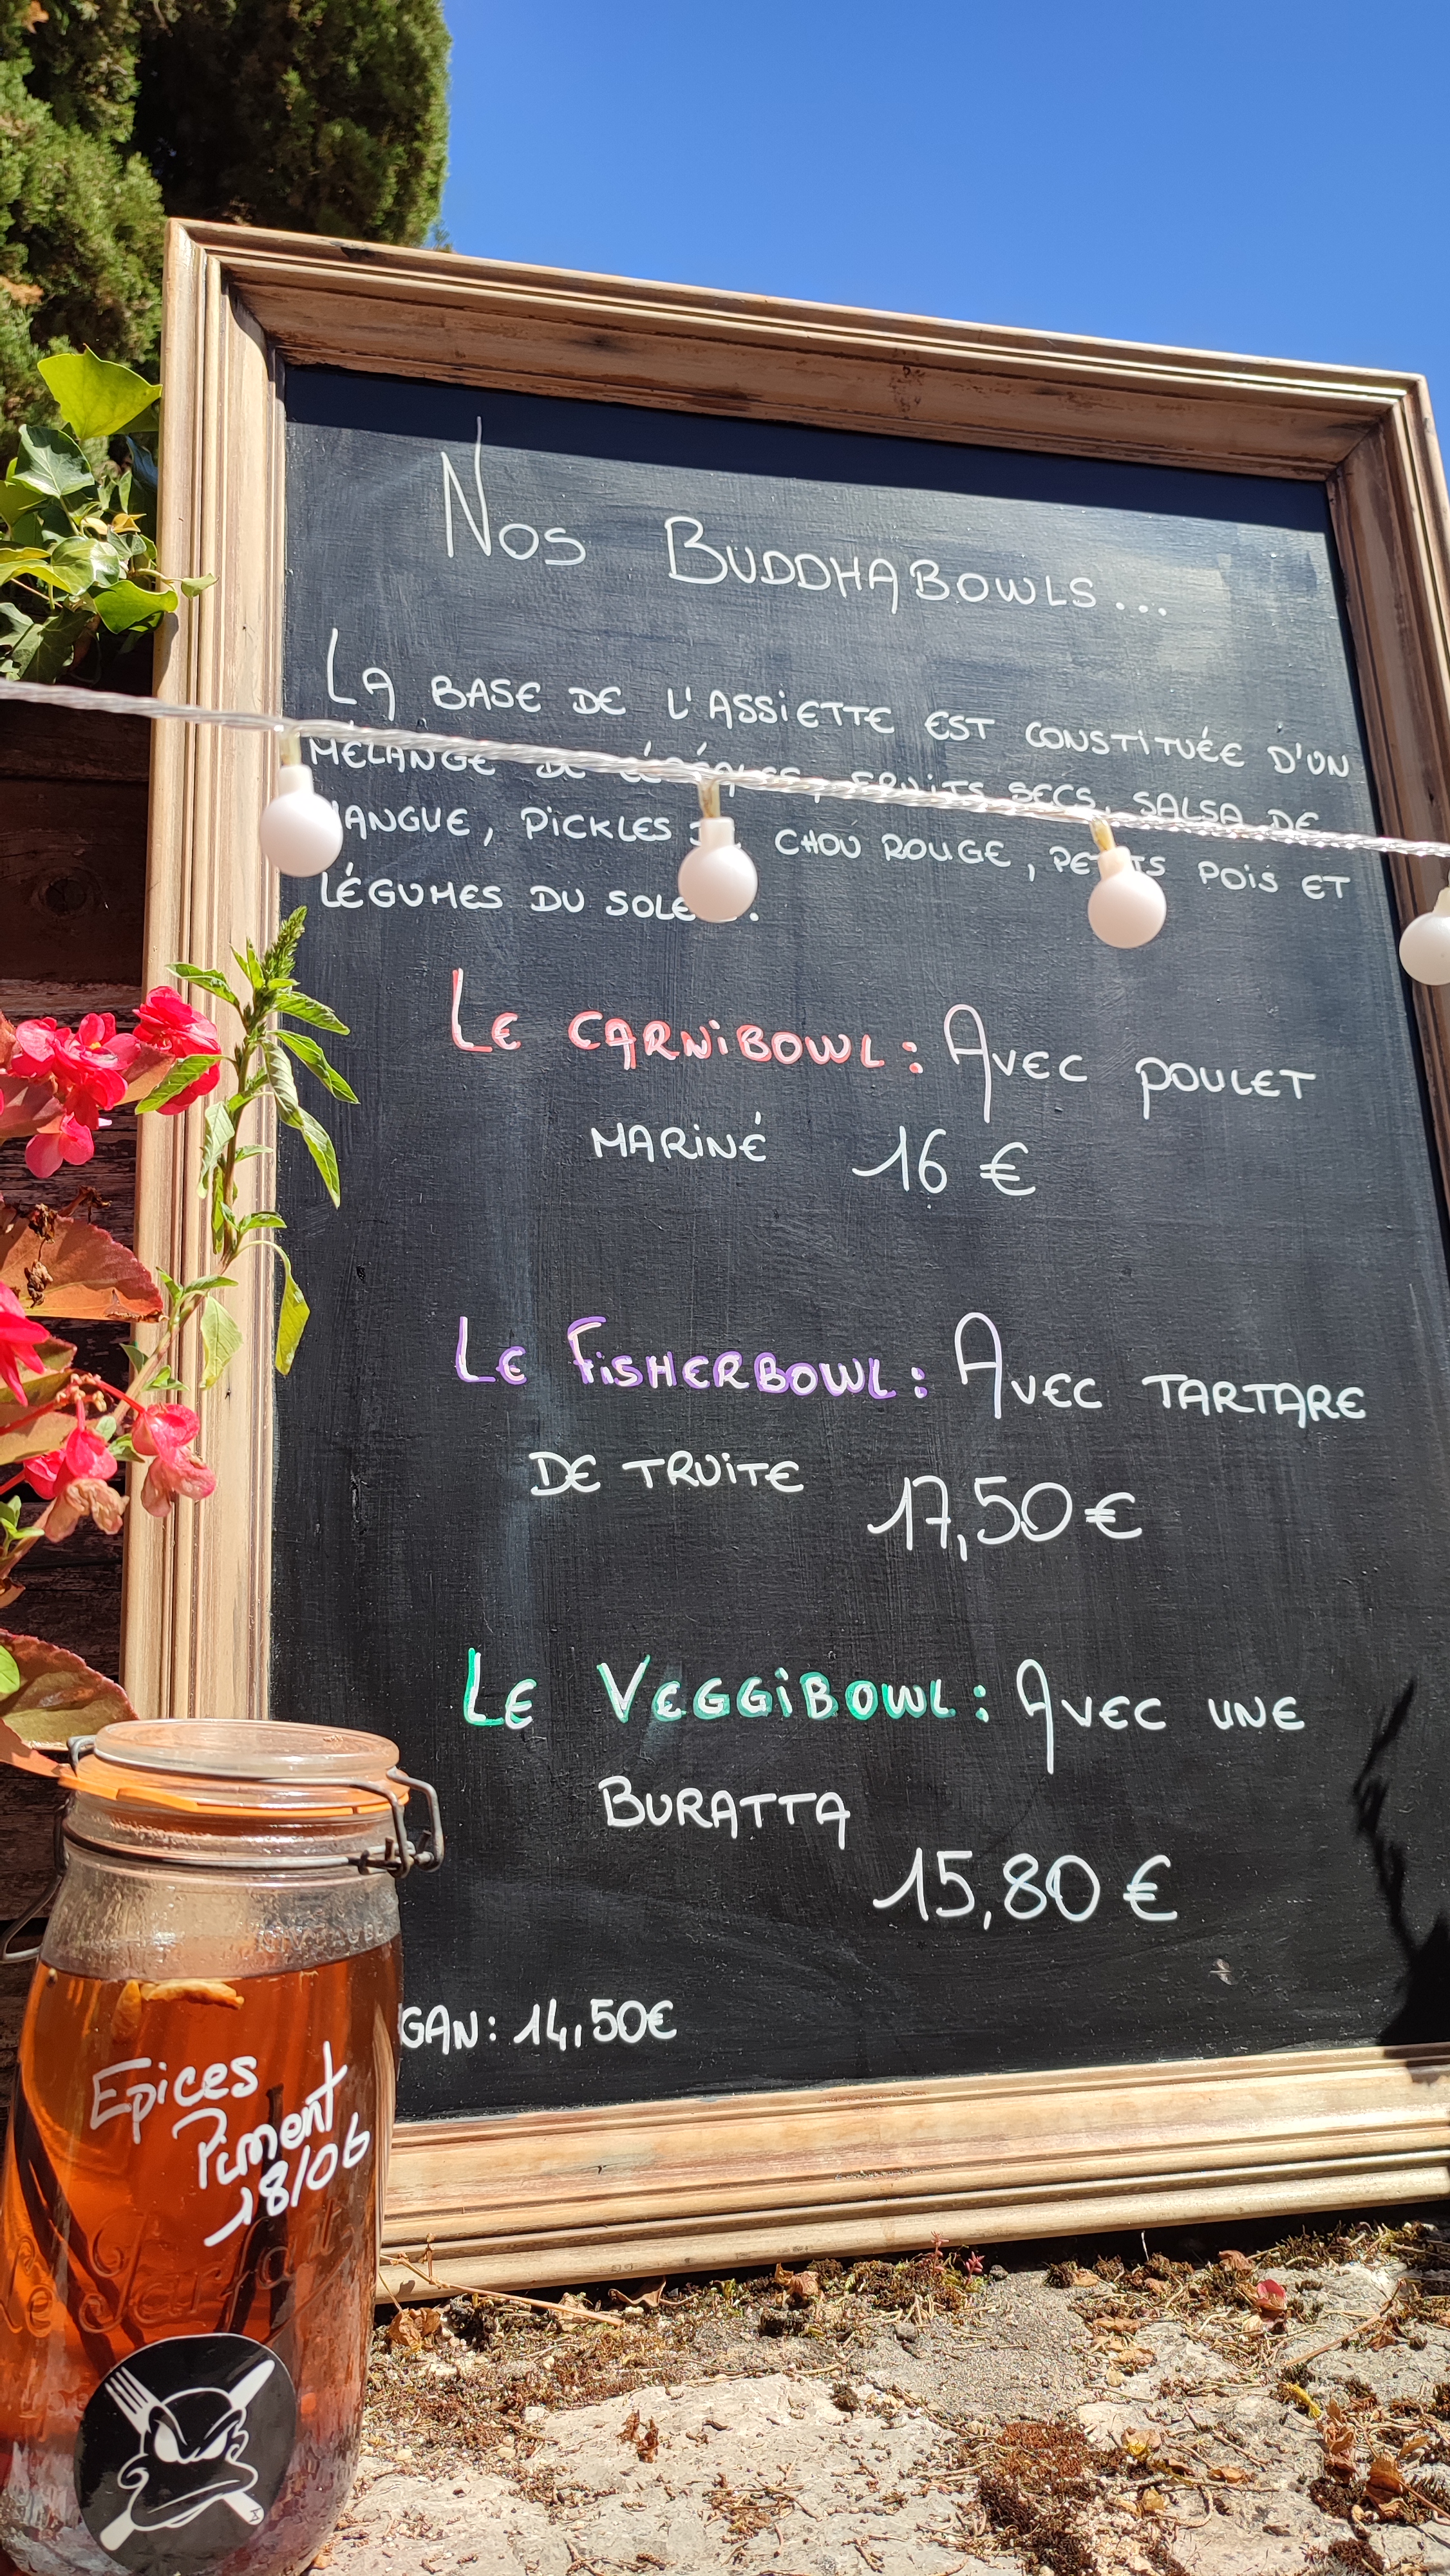 Nos BUDDHABOWLS...
LA BASE DE L'ASSIETTE EST CONSTITUÉE D'UN
MÉLANGE DE CÉRÉALES, FRUITS SECS, SALSA DE
MANGUE, PICKLES DE CHOU ROUGE, PETITS POIS ET
LÉGUMES DU SOLEIL.
LE CARNIBOWL: AVEC POULET
MARINÉ 16 €
LE FISHERBOWL: AVEC TARTARE
DE TRUITE 17,50 €
LE VEGGIBOWL: AVEC UNE
BURATTA
15,80 €
GAN: 14,50€
Epices
Piment
18/06
Le Parfait